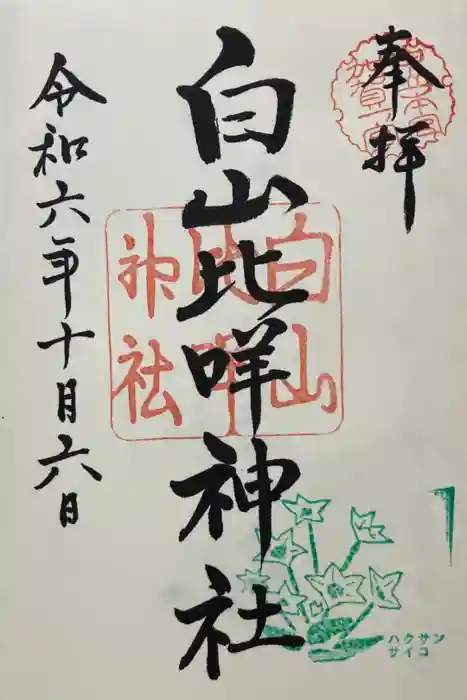 奉拝
白山比咩神社
令和六年十月六日
白山比咩神社
ハクサン
サイコ